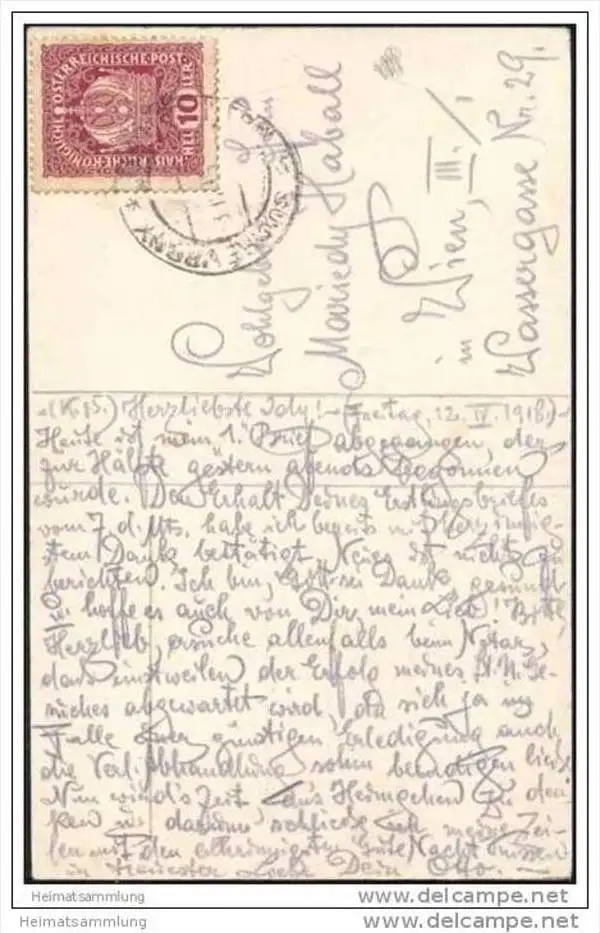 KAIS. KÖNIGLICHE ÖSTERREICHISCHE POST
10 HELLER
Wohlgeb.
Mariedy Haball
in Wien, III./1
Wassergasse Nr. 29.
(K. 15.) Herzliebste Idy! – Freitag, 12. IV. 1918. –
Heute ist mein 1. Brief abgegangen, der
zur Hälfte gestern abends begonnen
wurde. Den Erhalt Deines Erstlingsbriefes
vom 7. d. Mts. habe ich bereits mit herzinnig-
stem Dank bestätigt. Neues ist nichts zu
berichten. Ich bin, Gott sei Dank gesund
u. hoffe es auch von Dir, mein Lieb! Bitte,
Herzlieb, ersuche allenfalls beim Notar,
dass einstweilen der Erfolg meines Ge-
suches abgewartet wird, da sich ja im
Falle einer günstigen Erledigung auch
die Verl. Abhandlung sohin beendigen ließe.
Nun wird's Zeit ans Heimgehen zu den-
ken u. darum schließe ich meine Zei-
len mit den allerinnigsten Gute Nacht Küssen
in treuester Liebe Dein Otto. –
Heimatsammlung
www.delcampe.net
Heimatsammlung
www.delcampe.net